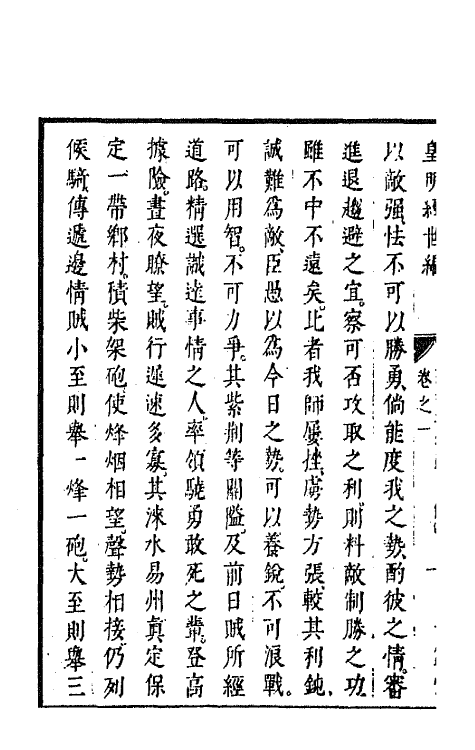 皇明經世編
卷之一
以敵强。怯不可以勝勇。倘能度我之勢。酌彼之情。審
進退趨避之宜。察可否攻取之利。則料敵制勝之功。
雖不中不遠矣。比者我師屡挫。虜勢方張。較其利鈍。
誠難爲敵。臣愚以爲今日之勢。可以養銳。不可浪戰。
可以用智。不可力爭。其紫荆等關隘。及前日賊所經
道路。精選誠達事情之人。率領驍勇敢死之輩。登高
據險。晝夜瞭望。賊行遲速多寡。其淶水易州真定保
定一帶鄉村。積柴架砲。使烽烟相望。聲勢相接。仍列
候騎。傳遞邊情。賊小至則舉一烽一砲。大至則舉三